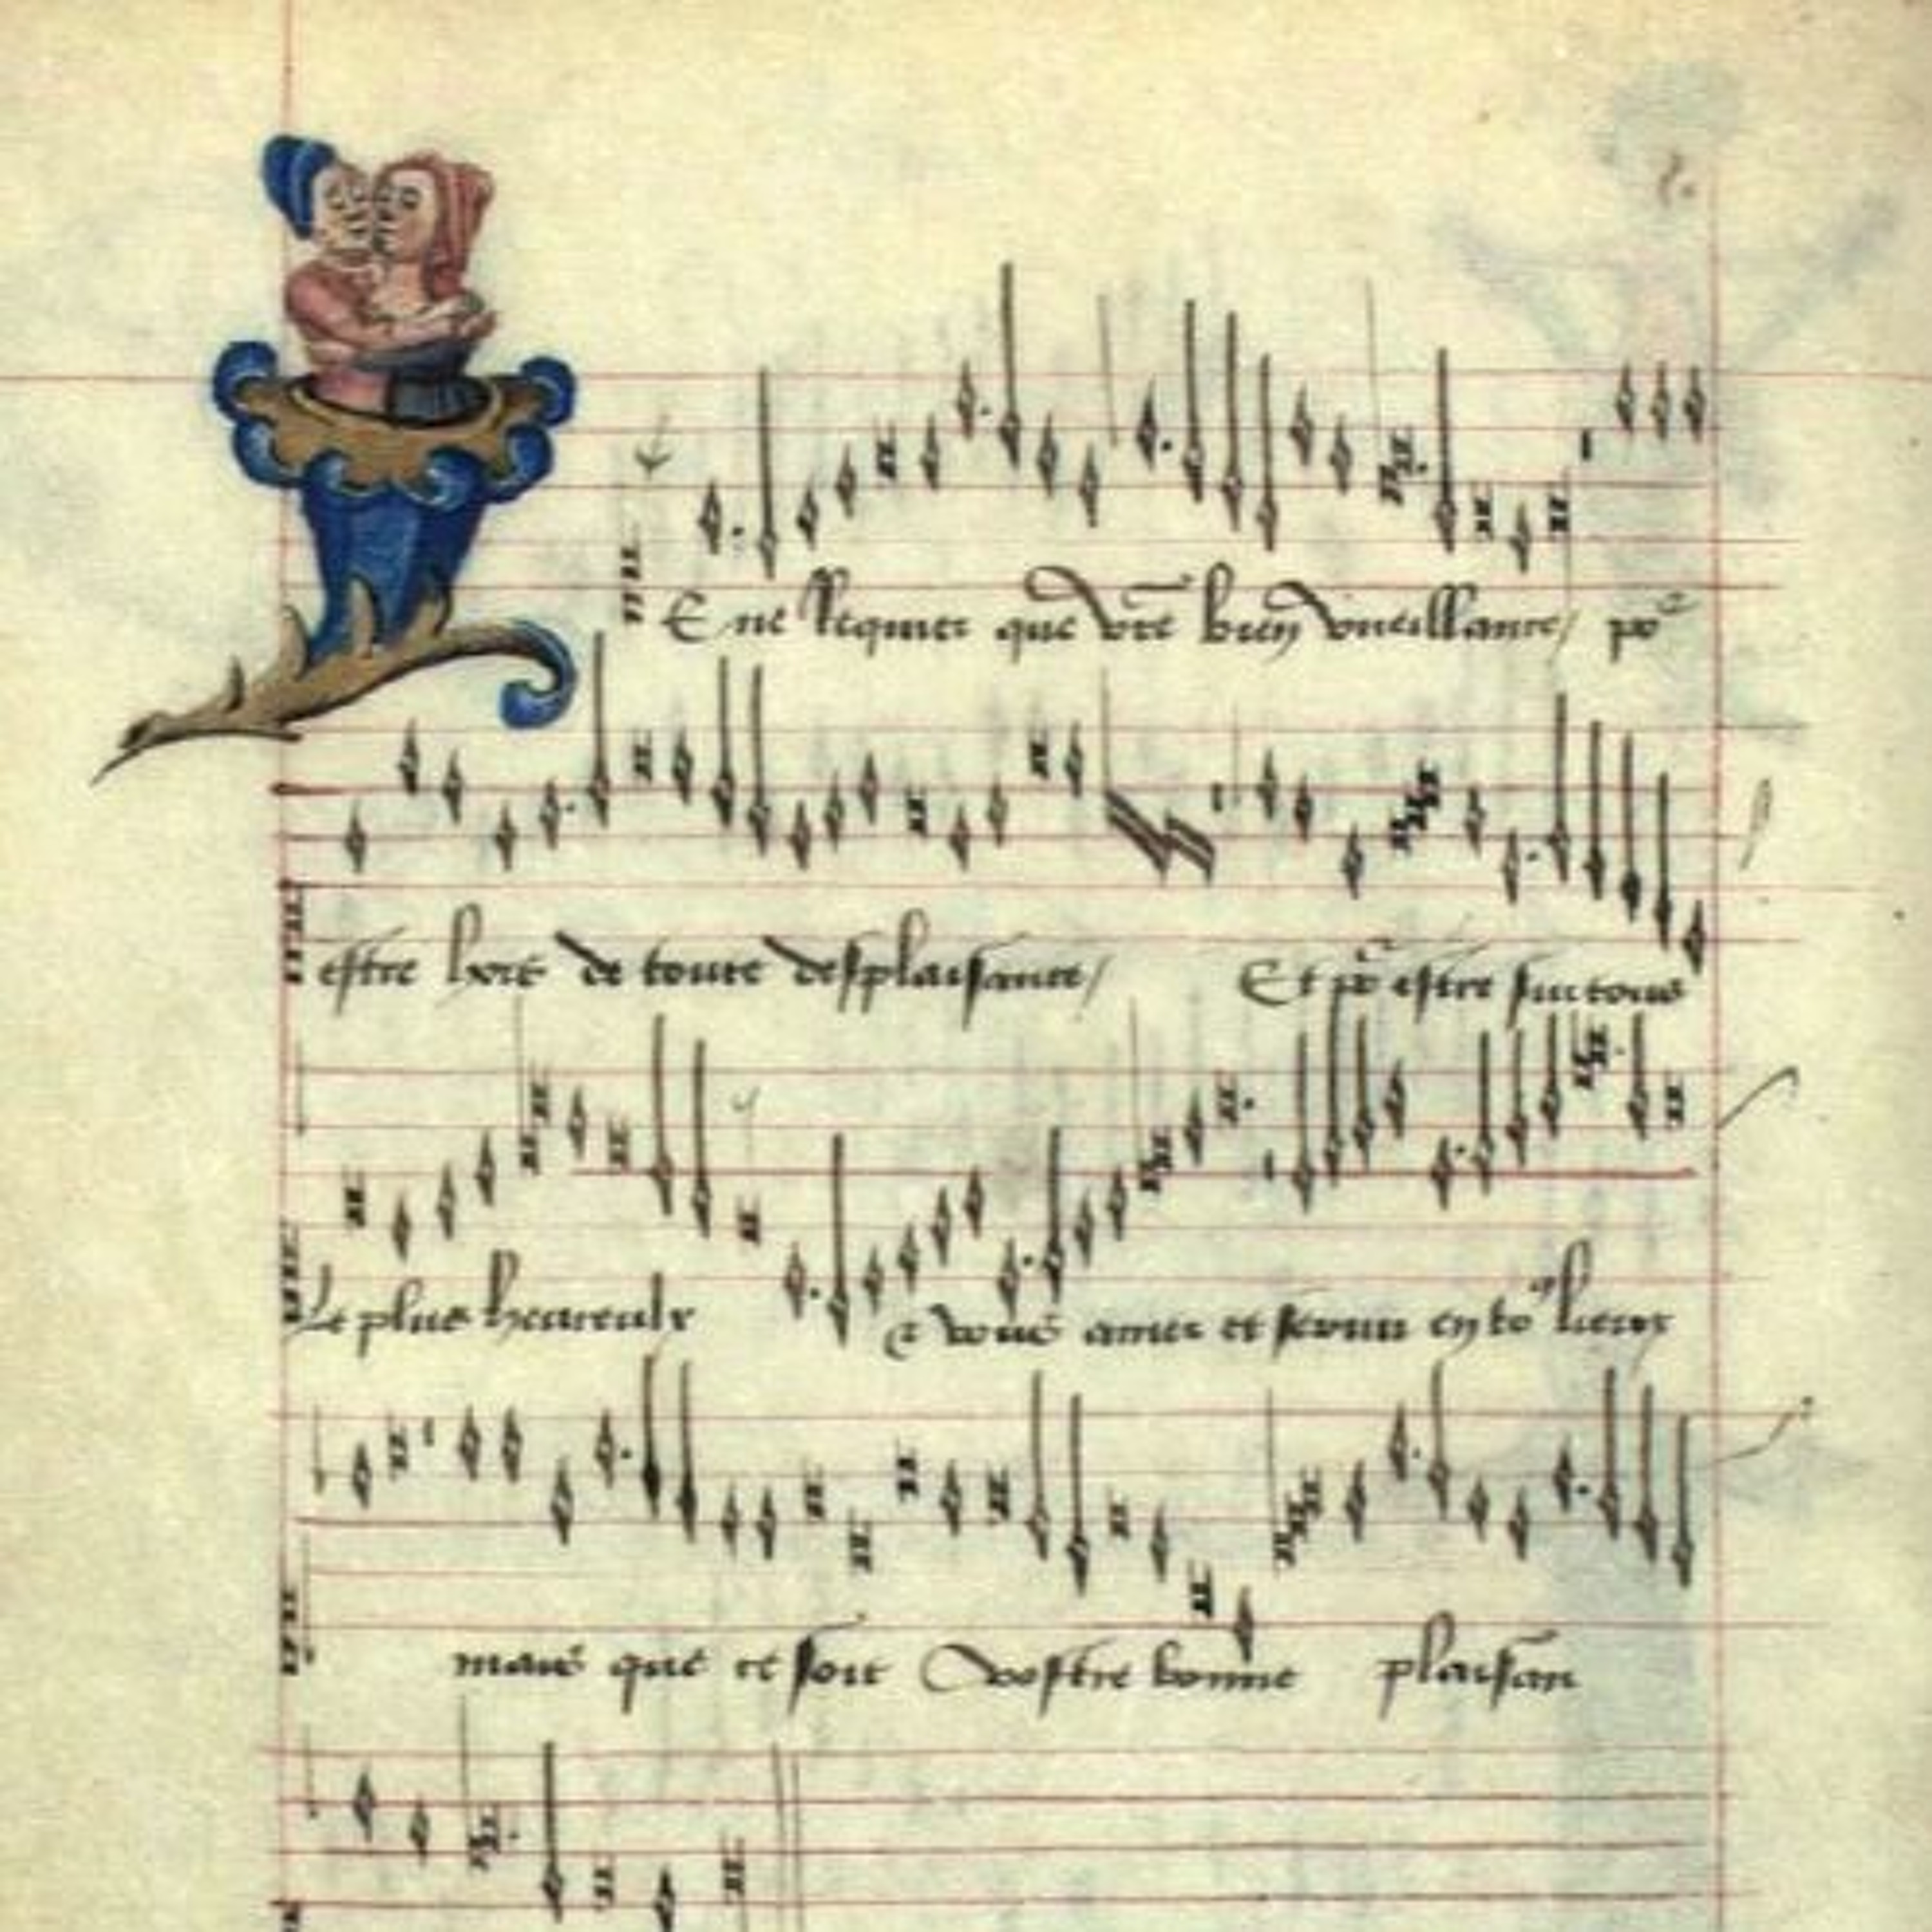 E ne Requier que vre bien vueillance / po
estre hors de toute desplaisance / Et po estre sur tous
Le plus heureulx A vous amer et servir en to lieux
mais que ce soit vostre bonne plaisan